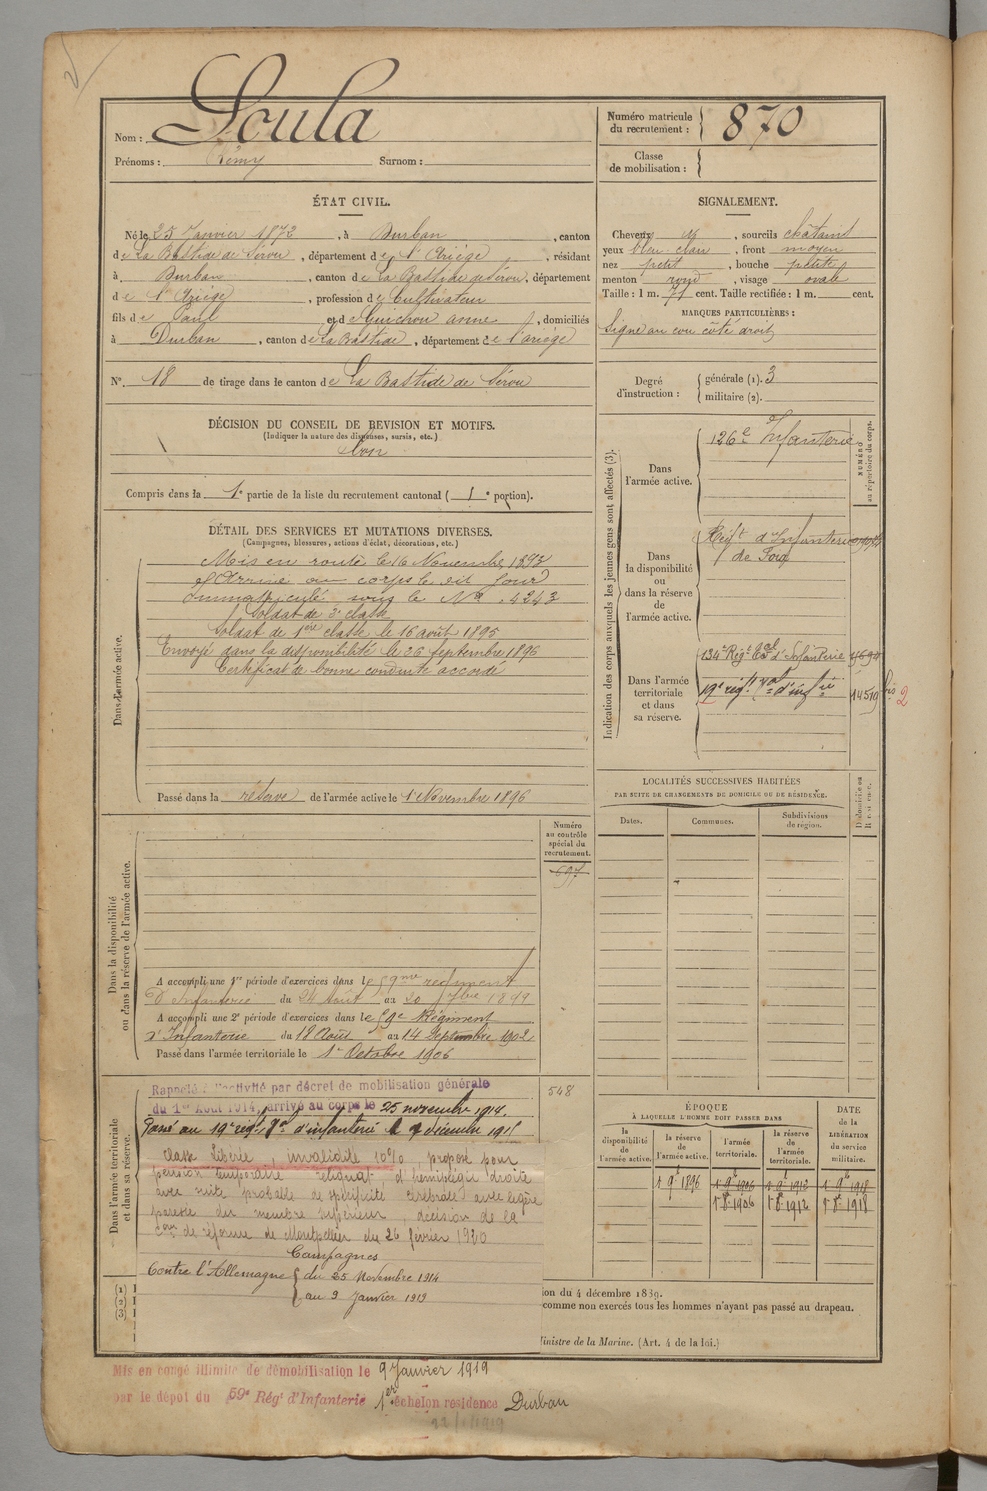 Nom : Soula
Prénoms : Rémy Surnom :
Numéro matricule du recrutement : 870
Classe de mobilisation :
ÉTAT CIVIL.
Né le 25 Janvier 1872, à Durban, canton
de La Bastide de Sérou, département de l'Ariège, résidant
à Durban, canton de La Bastide de Sérou, département
de l'Ariège, profession de Cultivateur
fils de Paul et de Guichou anne, domiciliés
à Durban, canton de La Bastide, département de l'ariège
N° 18 de tirage dans le canton de La Bastide de Sérou
SIGNALEMENT.
Cheveux , sourcils châtains
yeux bleu clair, front moyen
nez petit, bouche petite
menton rond, visage ovale
Taille : 1 m. 71 cent. Taille rectifiée : 1 m. cent.
MARQUES PARTICULIÈRES :
Signe au cou côté droit
Degré d'instruction : générale (1). 3
militaire (2).
DÉCISION DU CONSEIL DE REVISION ET MOTIFS.
(Indiquer la nature des dispenses, sursis, etc.)
Bon
Compris dans la 1e partie de la liste du recrutement cantonal ( 1e portion).
DÉTAIL DES SERVICES ET MUTATIONS DIVERSES.
(Campagnes, blessures, actions d'éclat, décorations, etc.)
Dans l'armée active.
Mis en route le 16 Novembre 1893
Arrivé au corps le dit jour
Immatriculé sous le N° 4243
Soldat de 2e classe
Soldat de 1ère classe le 16 août 1895
Envoyé dans la disponibilité le 26 Septembre 1896
Certificat de bonne conduite accordé
Passé dans la réserve de l'armée active le 1 Novembre 1896
Indication des corps auxquels les jeunes gens sont affectés (3).
Dans l'armée active.
126e Infanterie
NUMÉRO au répertoire du corps.
Dans la disponibilité ou dans la réserve de l'armée active.
Régt d'Infanterie
de Foix
Dans l'armée territoriale et dans sa réserve.
134e Régt Eal d'Infanterie
19e régt Tal d'infie 14519 bis 2
LOCALITÉS SUCCESSIVES HABITÉES
PAR SUITE DE CHANGEMENTS DE DOMICILE OU DE RÉSIDENCE.
Dates. Communes. Subdivisions de région. Domicile ou Résidence.
Numéro au contrôle spécial du recrutement.
697
Dans la disponibilité ou dans la réserve de l'armée active.
A accompli une 1re période d'exercices dans le 59me régiment
d'Infanterie du 24 Août au 20 7bre 1899
A accompli une 2e période d'exercices dans le 59e Régiment
d'Infanterie du 18 Août au 14 Septembre 1902
Passé dans l'armée territoriale le 1er Octobre 1906
548
Dans l'armée territoriale et dans sa réserve.
Rappelé à l'activité par décret de mobilisation générale
du 1er Août 1914, arrivé au corps le 25 novembre 1914.
Passé au 19e régt Tal d'infanterie le 7 décembre 1915
Classe libérée, invalidité 10% proposé pour
pension temporaire reliquat d'hémiplégie droite
avec suite probable de spécificité cérébrale avec légère
paresse du membre supérieur, décision de la
Con de réforme de Montpellier du 26 février 1920
Campagnes
Contre l'Allemagne du 25 Novembre 1914
au 9 Janvier 1919
ÉPOQUE
À LAQUELLE L'HOMME DOIT PASSER DANS
DATE DE LA LIBÉRATION du service militaire.
la disponibilité de l'armée active. la réserve de l'armée active. l'armée territoriale. la réserve de l'armée territoriale.
1 9e 1896 1 9e 1906 1 9e 1912 1 9e 1918
1 8e 1906 1 8e 1912 1 8e 1918
(1)
(2)
(3)
ion du 4 décembre 1889.
comme non exercés tous les hommes n'ayant pas passé au drapeau.
Ministre de la Marine. (Art. 4 de la loi.)
Mis en congé illimité de démobilisation le 9 Janvier 1919
par le dépôt du 59e Régt d'Infanterie 1er échelon residence Durban